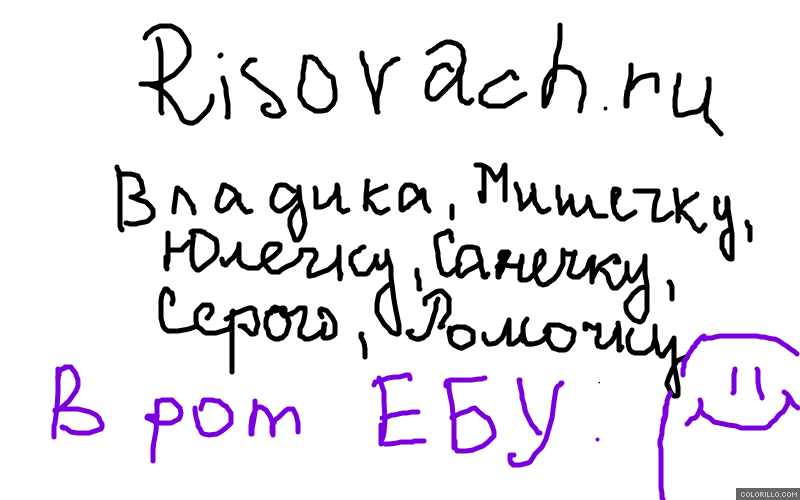 Risovach.ru
Владика, Мишечку,
Юлечку, Санечку,
Серого, Ромочку
В рот ЕБУ.
COLORILLO.COM